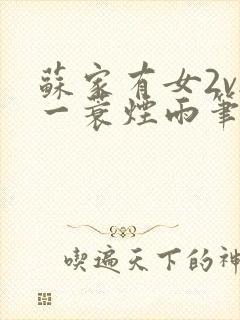 蘇家有女2v
一蓑煙雨筆
喫遍天下的神